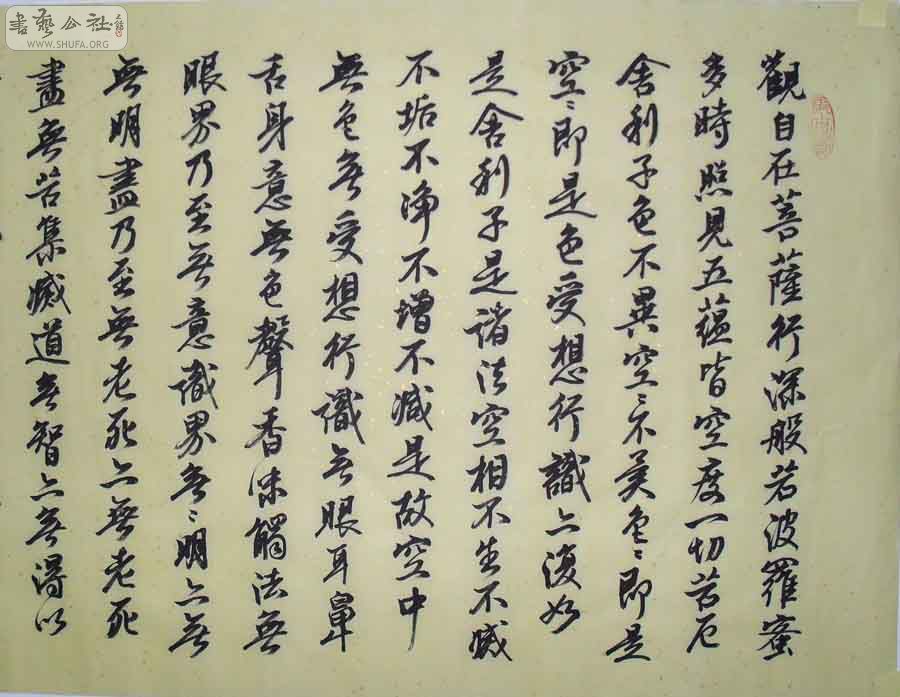 書藝公社
WWW.SHUFA.ORG
觀自在菩薩行深般若波羅蜜
多時照見五蘊皆空度一切苦厄
舍利子色不異空〻不異色〻即是
空〻即是色受想行識亦復如
是舍利子是諸法空相不生不滅
不垢不淨不增不減是故空中
無色無受想行識無眼耳鼻
舌身意無色聲香味觸法無
眼界乃至無意識界無〻明亦無
無明盡乃至無老死亦無老死
盡無苦集滅道無智亦無得以